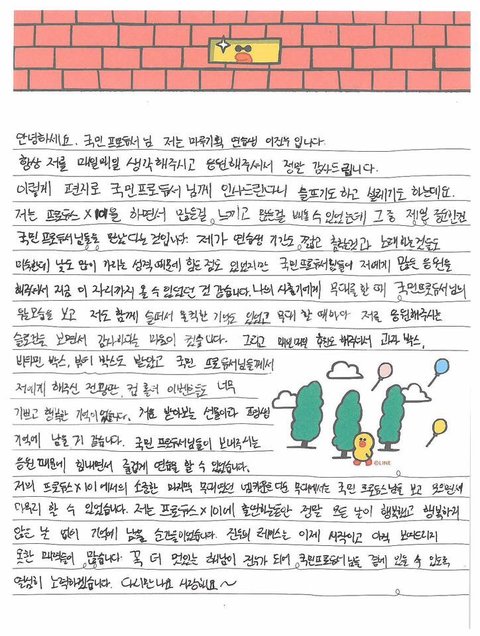 안녕하세요. 국민 프로듀서님 저는 마루기획 연습생 이진우입니다.
항상 저를 매일매일 생각해주시고 응원해주셔서 정말 감사드립니다.
이렇게 편지로 국민프로듀서님께 인사드린다니 슬프기도하고 설레기도 하는데요.
저는 프로듀스X101을 하면서 많은걸 느끼고 많은걸 배울 수 있었는데 그 중 제일 중요한건
국민 프로듀서님들을 만났다는 것입니다. 제가 연습생 기간도 짧고 춤추는것과 노래하는것들도
미숙한데 낯도 많이 가리는 성격 때문에 힘든 점도 있었지만 국민 프로듀서님들이 저에게 많은 응원을
해주셔서 지금 이 자리까지 올 수 있었던 것 같습니다. 나의 사춘기에게 무대를 할 때 국민프로듀서님의
눈물을 보고 저도 함께 슬퍼서 울컥한 기억도 있었고 무대 할 때마다 저를 응원해주시는
슬로건을 보면서 감사하다는 마음이 컸습니다. 그리고 매일매일 투표도 해주셔서 과자 박스,
비타민 박스, 뷰티 박스도 받았고 국민 프로듀서님들께서
저에게 해주신 전광판, 컵 홀더 이벤트들도 너무
기쁘고 행복한 기억이었습니다. 처음 받아보는 선물이라 평생
기억에 남을 거 같습니다. 국민 프로듀서님들이 보내주시는
응원 때문에 힘내면서 즐겁게 연습을 할 수 있었습니다.
©LINE
저의 프로듀스X101에서의 소중한 마지막 무대였던 무대에서는 국민 프로듀서님을 보고 웃으면서
마무리 할 수 있었습니다. 저는 프로듀스X101에 출연하는동안 정말 모든 날이 행복했고 행복하지
않은 날 없이 기억에 남을 순간들이었습니다. 진우의 레벨스는 이제 시작이고 아직 보여드리지
못한 매력들이 많습니다. 꼭 더 멋있는 해남이 진우가 되어 국민프로듀서님을 곁에 있을 수 있도록
열심히 노력하겠습니다. 다시만나요 사랑해요~